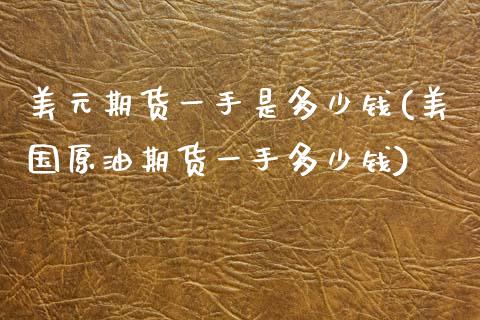 美元期货一手是多少钱(美
国原油期货一手多少钱)